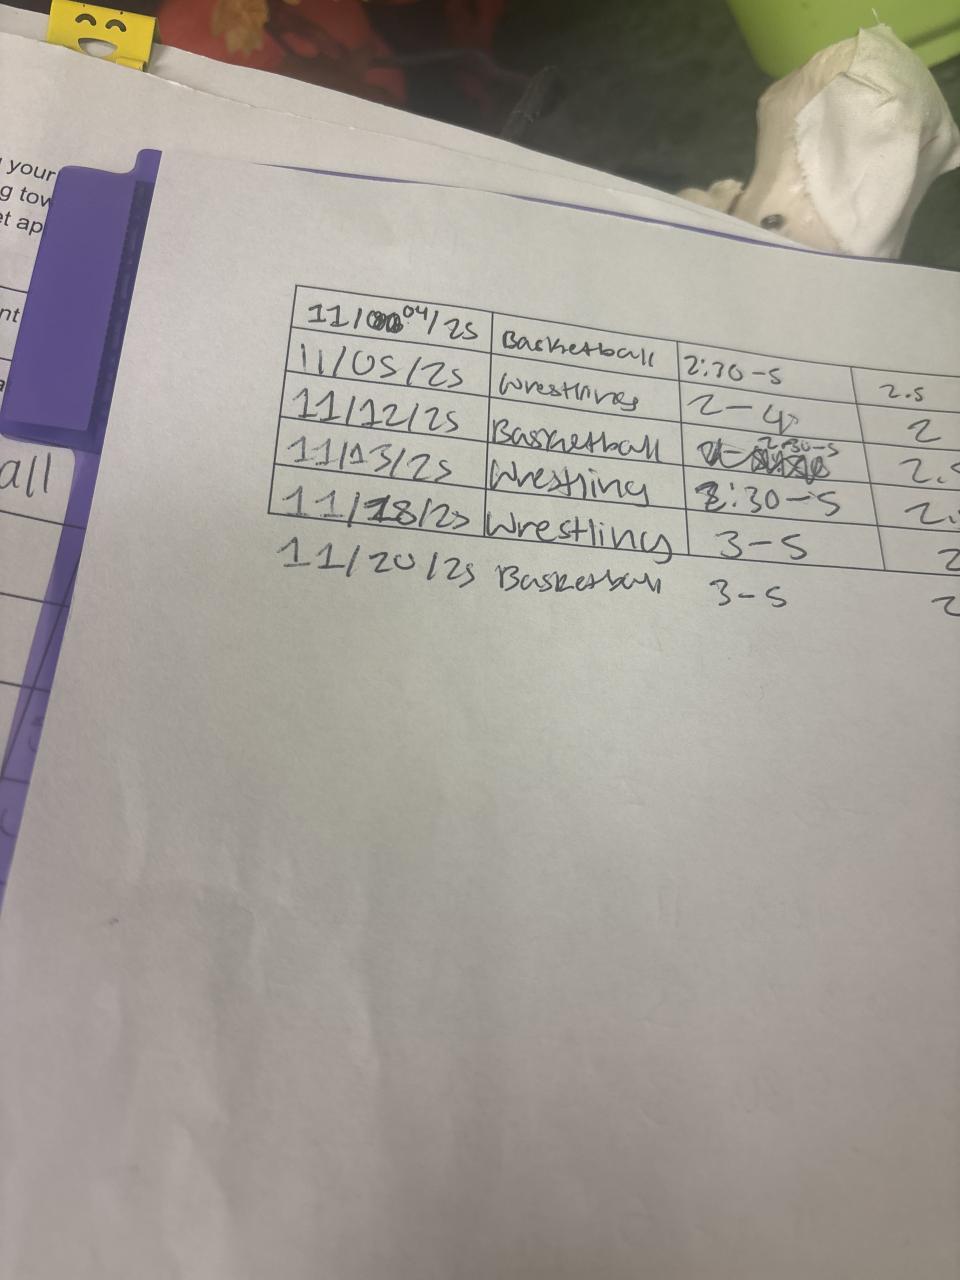 your
g tow
et ap
nt
a
all
11/04/25 Basketball 2:30-5 2.5
11/05/25 Wrestling 2-4 2
11/12/25 Basketball 2:30-5 2.
11/13/25 Wrestling 2:30-5 2.
11/18/25 Wrestling 3-5 2
11/20/25 Basketball 3-5 2